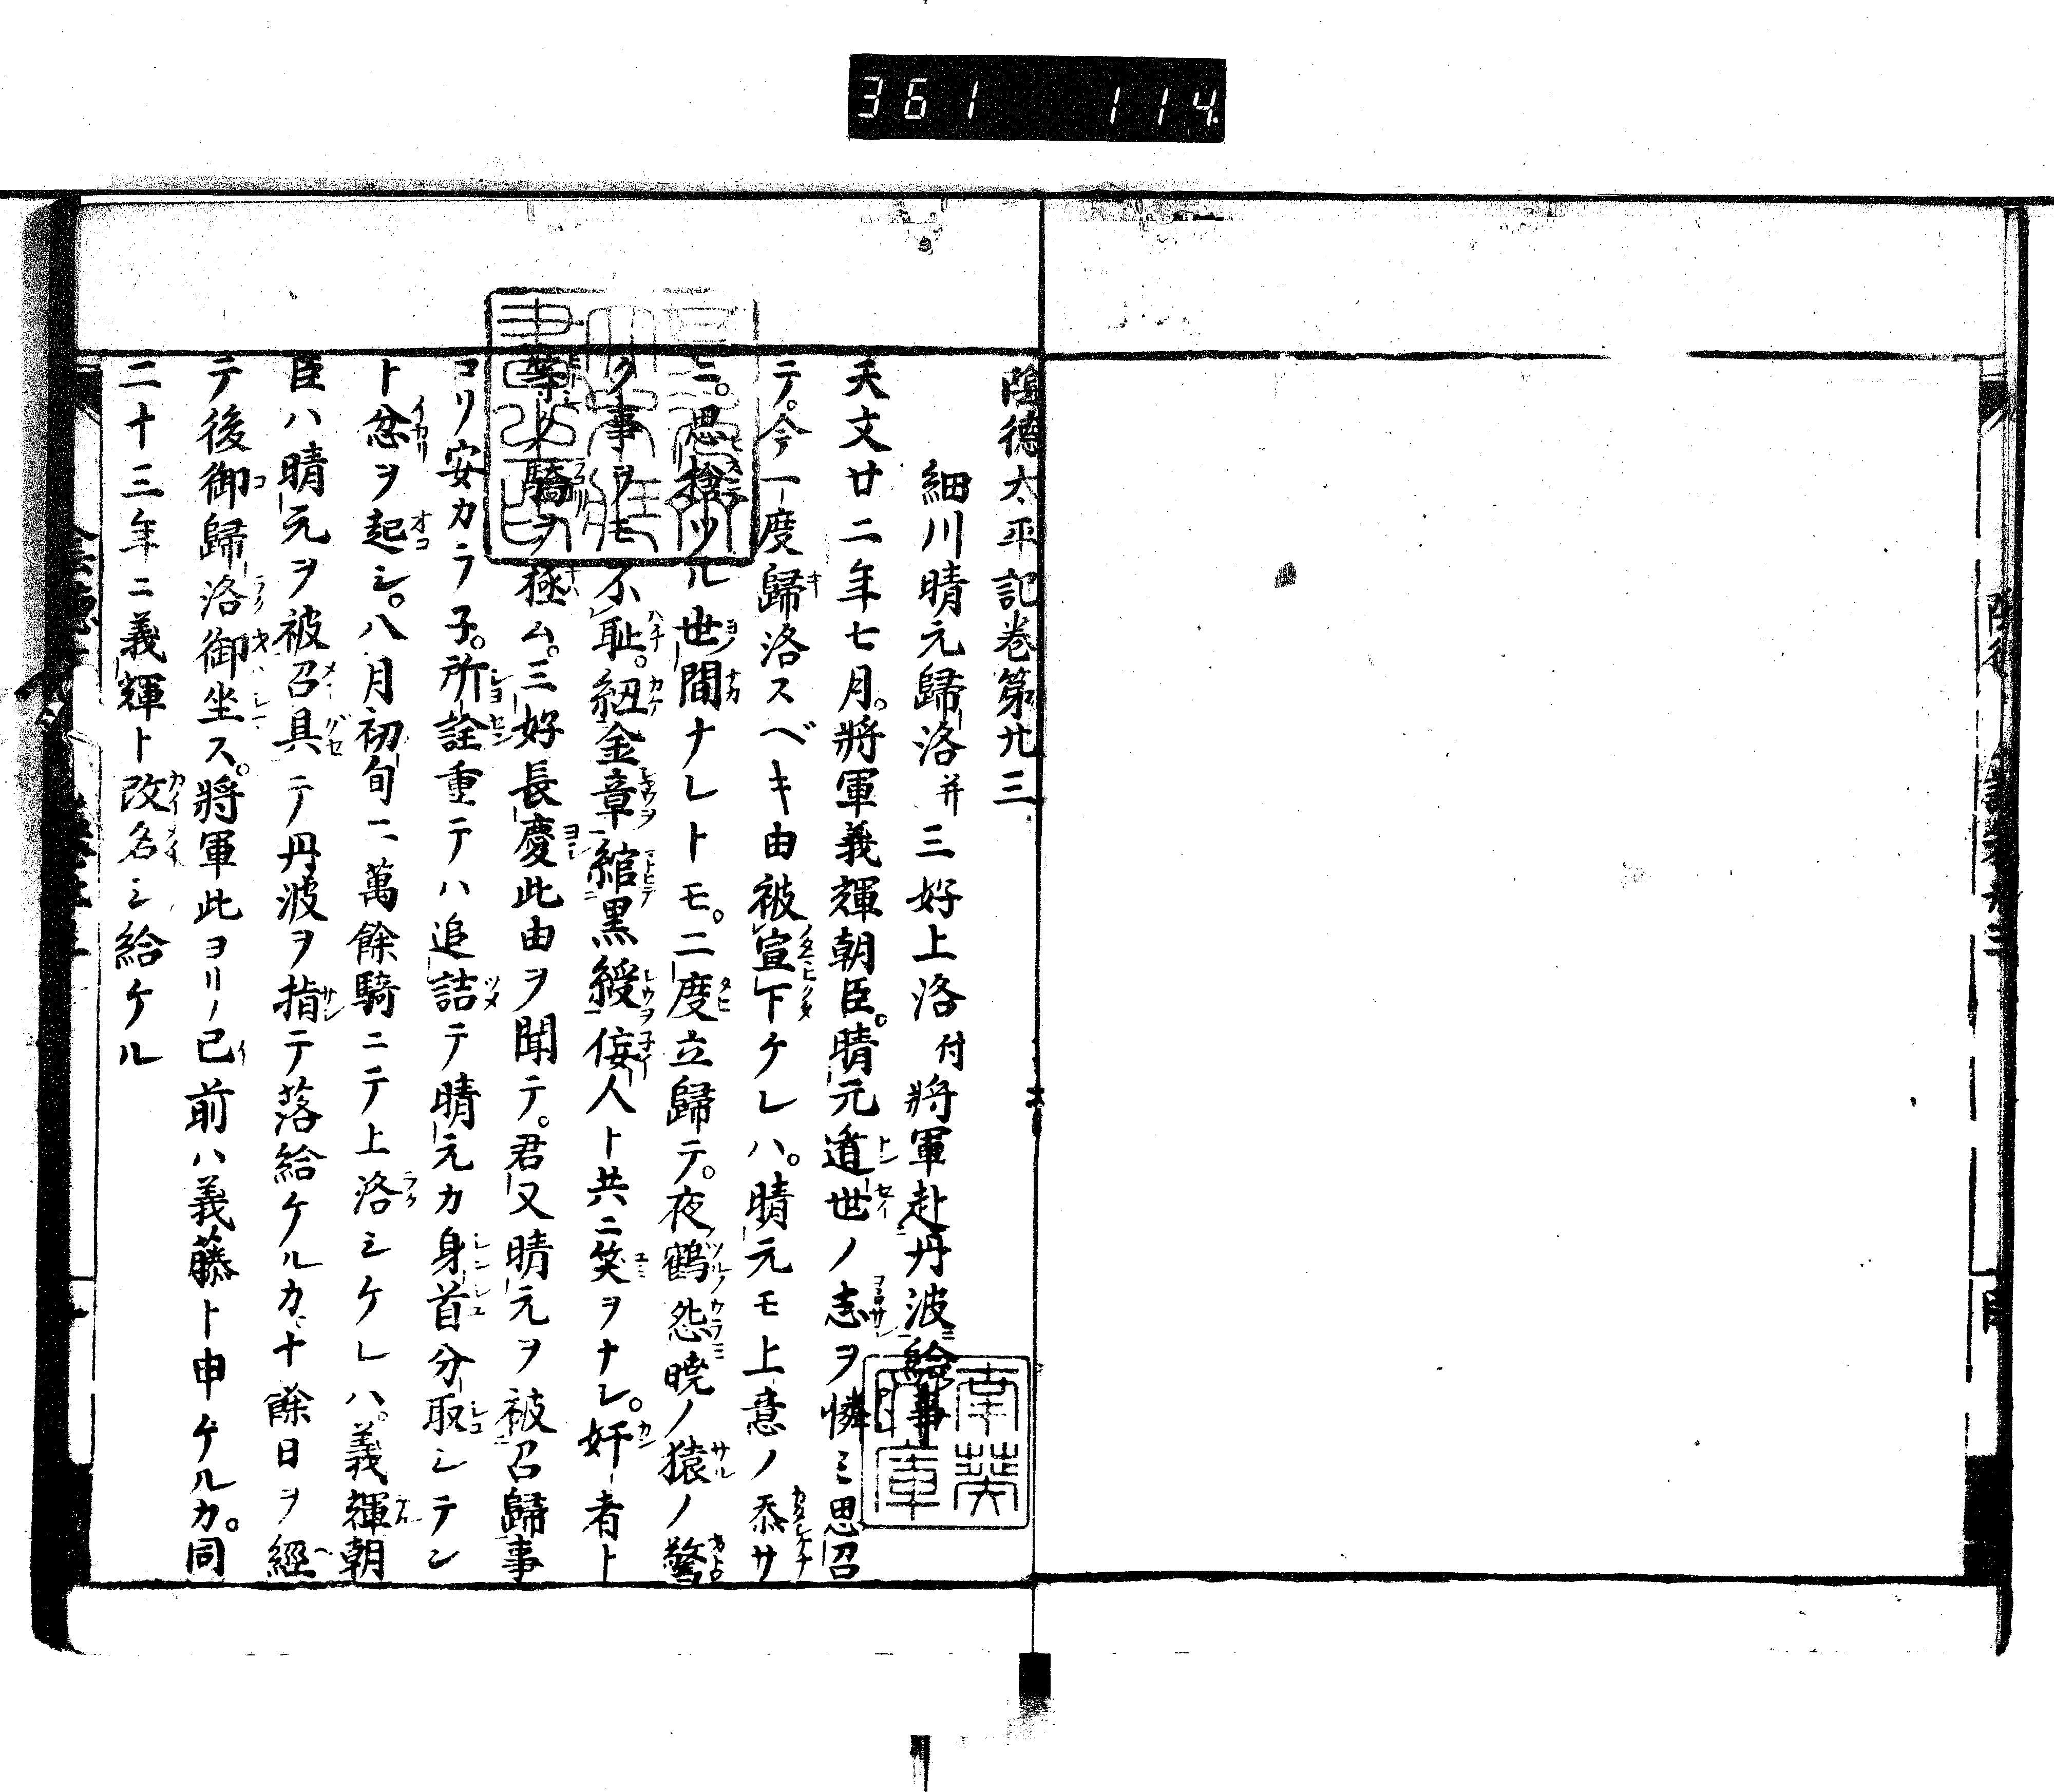 361 114
陰德太平記卷第廿三
細川晴元歸洛并三好上洛付將軍赴丹波給事
天文廿二年七月。將軍義輝朝臣。晴元遁世ノ志ヲ憐ミ思召
テ。今一度歸洛スベキ由被宣下ケレハ。晴元モ上意ノ忝サ
ニ。思捨ツル世間ナレトモ。二度立歸テ。夜鶴怨曉ノ猿ノ驚
ク事ヲモ不恥。紐金章綰黒綬佞人ト共ニ笑ヲナシ。奸者ト
等ク驕ヲ極ム。三好長慶此由ヲ聞テ。君又晴元ヲ被召歸事
コリ安カラ子。所詮重テハ追詰テ晴元カ身首分取シテン
ト忿ヲ起シ。八月初旬ニ萬餘騎ニテ上洛シケレハ。義輝朝
臣ハ晴元ヲ被召具テ丹波ヲ指テ落給ケルカ十餘日ヲ經
テ後御歸洛御坐ス。將軍此ヨリ已前ハ義藤ト申ケルカ。同
二十三年ニ義輝ト改名シ給ケル